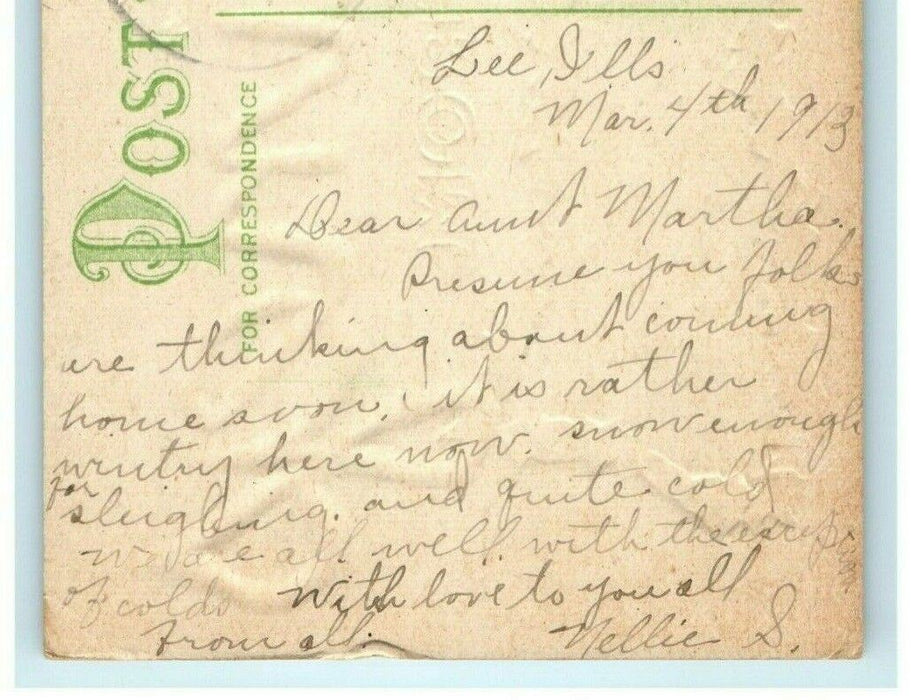 POST
FOR CORRESPONDENCE
Lee, Ills
Mar. 4th 1913
Dear Aunt Martha.
Presume you folks
are thinking about coming
home soon. it is rather
wintry here now. snow enough
for
sleighing. and quite cold
We are all well with the exception
of colds with love to you all
from all. Nellie S.